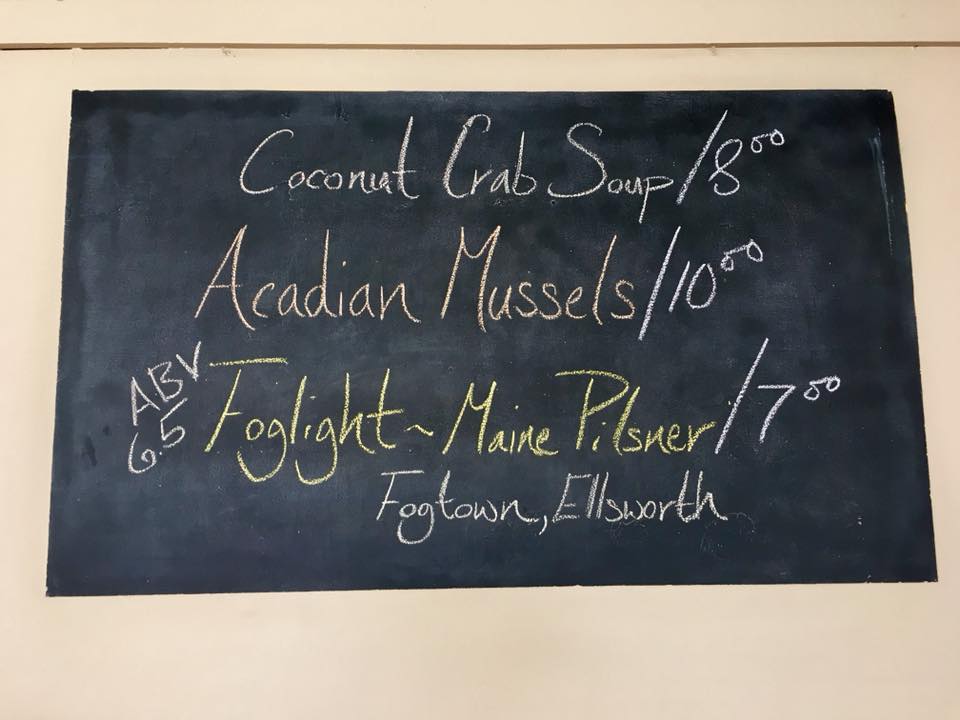 Coconut Crab Soup/8⁰⁰
Acadian Mussels/10⁰⁰
ABV
6.5
Foglight ~ Maine Pilsner/7⁰⁰
Fogtown, Ellsworth